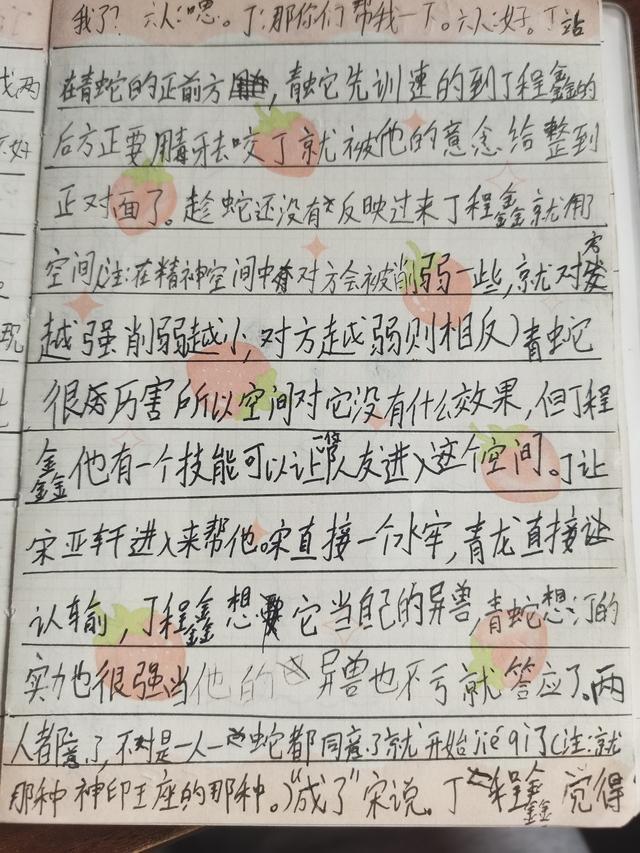 我了？六人：嗯。丁：那你们帮我一下。六人：好。丁站
在青蛇的正前方，青蛇先训速的到丁程鑫的
后方正要用毒牙去咬丁就被他的意念给整到
正对面了。趁蛇还没有反映过来丁程鑫就用
空间（注：在精神空间中对方会被削弱一些，就对方
越强削弱越小，对方越弱则相反）青蛇
很厉害所以空间对它没有什么效果，但丁程
鑫他有一个技能可以让一些队友进入这个空间。丁让
宋亚轩进入来帮他。宋直接一个水牢，青龙直接让
认输，丁程鑫想它当自己的异兽，青蛇想：丁的
实力也很强当他的异兽也不亏就答应了。两
人都同意了，不对是一人一蛇都同意了就开始jié qì了（注：就
那种神印王座的那种。）“成了”宋说。丁程鑫觉得
成两
好
现